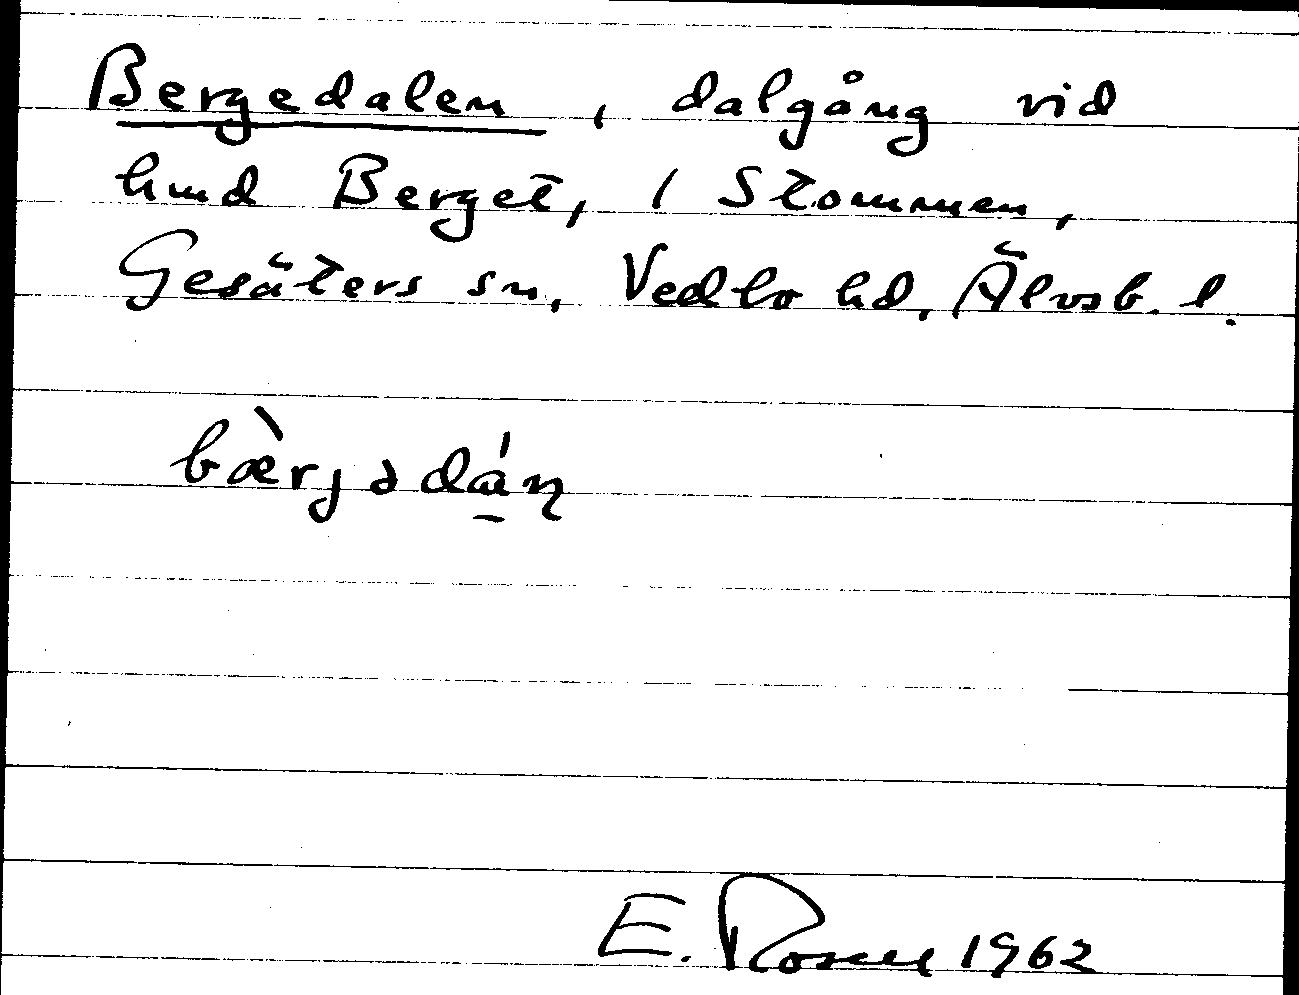 Bergedalen, dalgång vid
hmd Berget, 1 Stommen,
Gesäters sn, Vedbo hd, Älvsb. l.
bæ̀rjədán
E. 1962